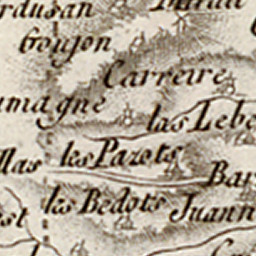 rdusan
Goujon
Carreire
umagne
las Lebe
llas
les Pazots
Bar
les Bedots
Juann
est